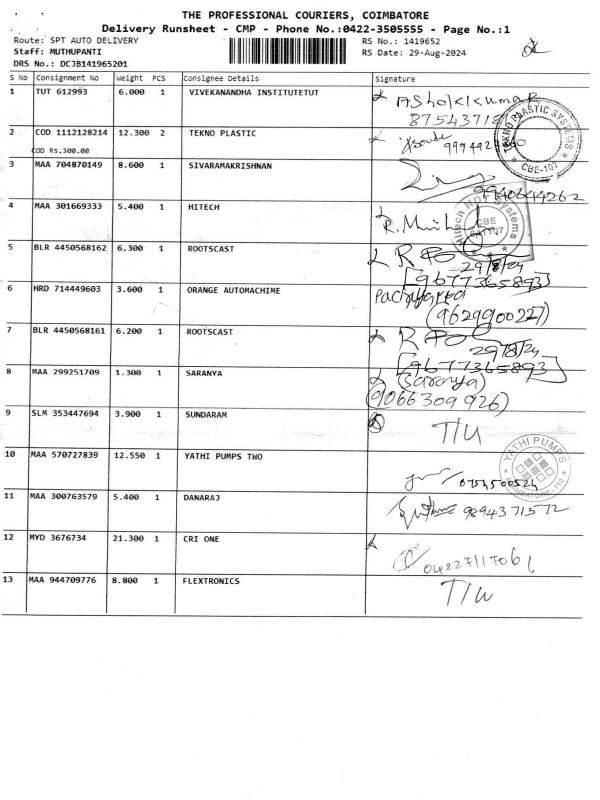 THE PROFESSIONAL COURIERS, COIMBATORE
Delivery Runsheet - CMP - Phone No.:0422-3505555 - Page No.:1
Route: SPT AUTO DELIVERY RS No.: 1419652
Staff: MUTHUPANTI RS Date: 29-Aug-2024
DRS No.: DCJB141965201
S No Consignment No Weight PCS Consignee Details Signature
1 TUT 612993 6.000 1 VIVEKANANDHA INSTITUTETUT Ashokkumar
87543718
2 COD 1112128214 12.300 2 TEKNO PLASTIC
COD Rs.300.00
TEKNO PLASTIC SYSTEMS
* CBE-107 *
3 MAA 704870149 8.600 1 SIVARAMAKRISHNAN
9940644262
4 MAA 301669333 5.400 1 HITECH R.
Hitech Systems
CBE
5 BLR 4450568162 6.300 1 ROOTSCAST
29/8/24
[9677365893]
6 HRD 714449603 3.600 1 ORANGE AUTOMACHIME
(9629900227)
7 BLR 4450568161 6.200 1 ROOTSCAST
29/8/24
[9677365893]
8 MAA 299251709 1.300 1 SARANYA (Saranya)
(9066309926)
9 SLM 353447694 3.900 1 SUNDARAM T/U
10 MAA 570727839 12.550 1 YATHI PUMPS TWO
YATHI PUMPS
11 MAA 300763579 5.400 1 DANARAJ 9894371572
12 MYD 3676734 21.300 1 CRI ONE
04227117061
13 MAA 944709776 8.800 1 FLEXTRONICS T/U